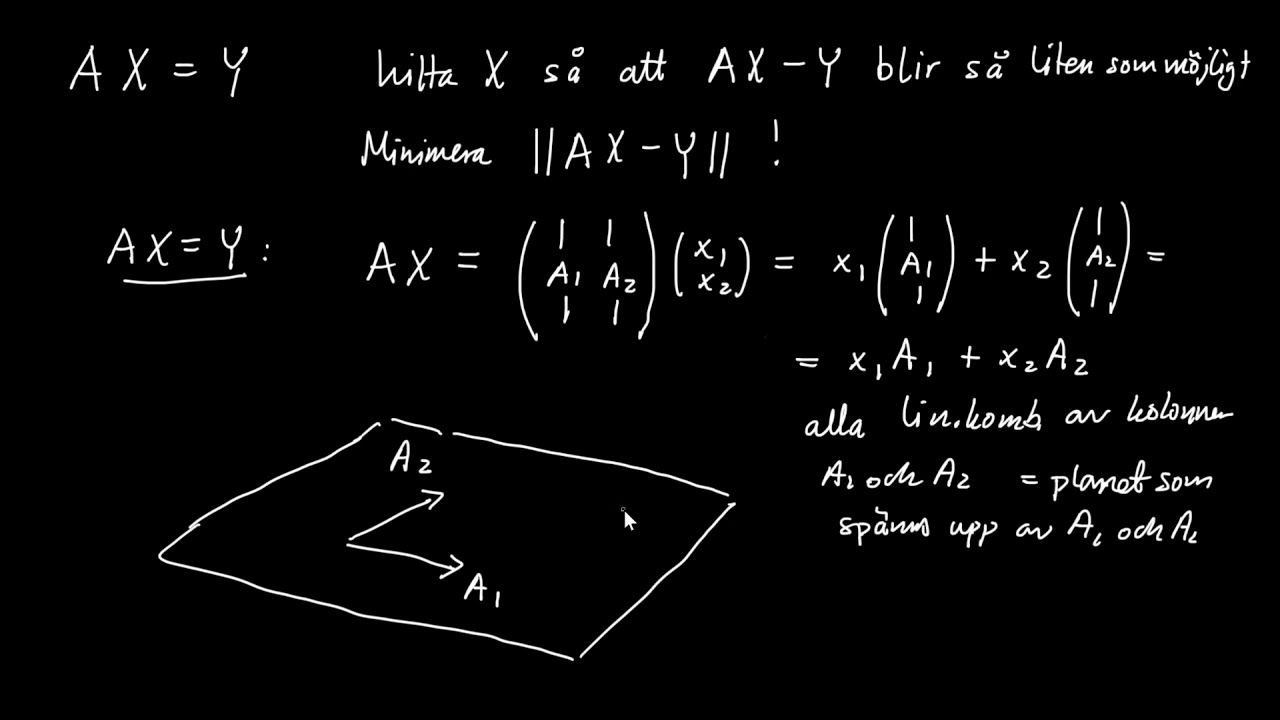 AX = Y hitta X så att AX - Y blir så liten som möjligt
Minimera ||AX - Y|| !
AX = Y : AX = ( | | A1 A2 | | ) ( x1 x2 ) = x1 ( | A1 | ) + x2 ( | A2 | ) =
= x1A1 + x2A2
alla lin.komb av kolonner
A1 och A2 = planet som
spänns upp av A1 och A2
A2
A1